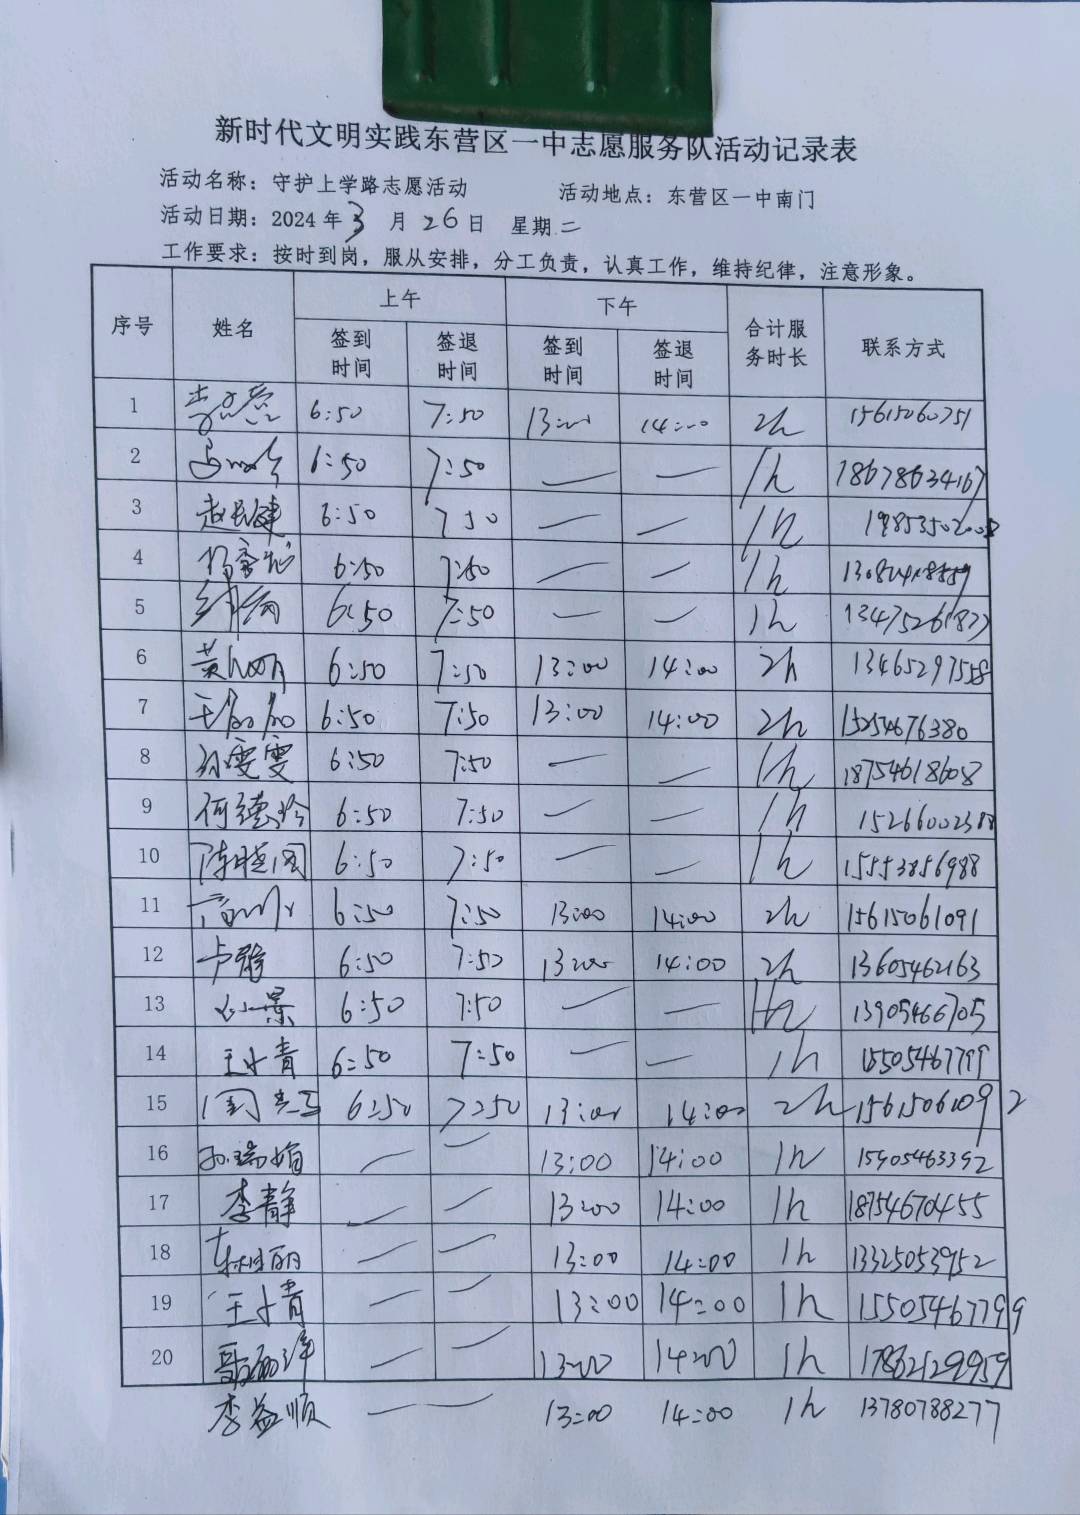 新时代文明实践东营区一中志愿服务队活动记录表
活动名称：守护上学路志愿活动 活动地点：东营区一中南门
活动日期：2024年3月26日 星期二
工作要求：按时到岗，服从安排，分工负责，认真工作，维持纪律，注意形象。
序号 姓名 上午 下午 合计服务时长 联系方式
签到时间 签退时间 签到时间 签退时间
1 6:50 7:50 13:00 14:00 2h 15615060751
2 6:50 7:50 — — 1h 18678634167
3 赵长建 6:50 7 50 — — 1h
4 6:50 7:50 — — 1h
5 6:50 7:50 — — 1h
6 6:50 7:50 13:00 14:00 2h 13465297558
7 6:50 7:50 13:00 14:00 2h 15254676380
8 孙雯雯 6:50 7:50 — — 1h 18754618608
9 何德玲 6:50 7:50 — — 1h
10 6:50 7:50 — — 1h 15553856988
11 6:50 7:50 13:00 14:00 2h 15615061091
12 卢静 6:50 7:50 13:00 14:00 2h 13605462163
13 6:50 7:50 — — 1h 13905466705
14 王小青 6:50 7:50 — — 1h 15505467799
15 6:50 7:50 13:00 14:00 2h 15615061092
16 孙瑞娟 — — 13:00 14:00 1h 15905463392
17 李静 — — 13:00 14:00 1h 18754670455
18 — — 13:00 14:00 1h 13325053952
19 王小青 — — 13:00 14:00 1h 15505467799
20 — — 13:00 14:00 1h 17862129959
李益顺 — — 13:00 14:00 1h 13780788277